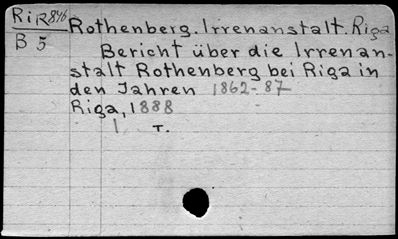 RiR846
Rothenberg. Irrenanstalt. Riga
B 5
Bericht über die Irrenan-
stalt Rothenberg bei Riga in
den Jahren 1862-87
Riga, 1888
1 T.